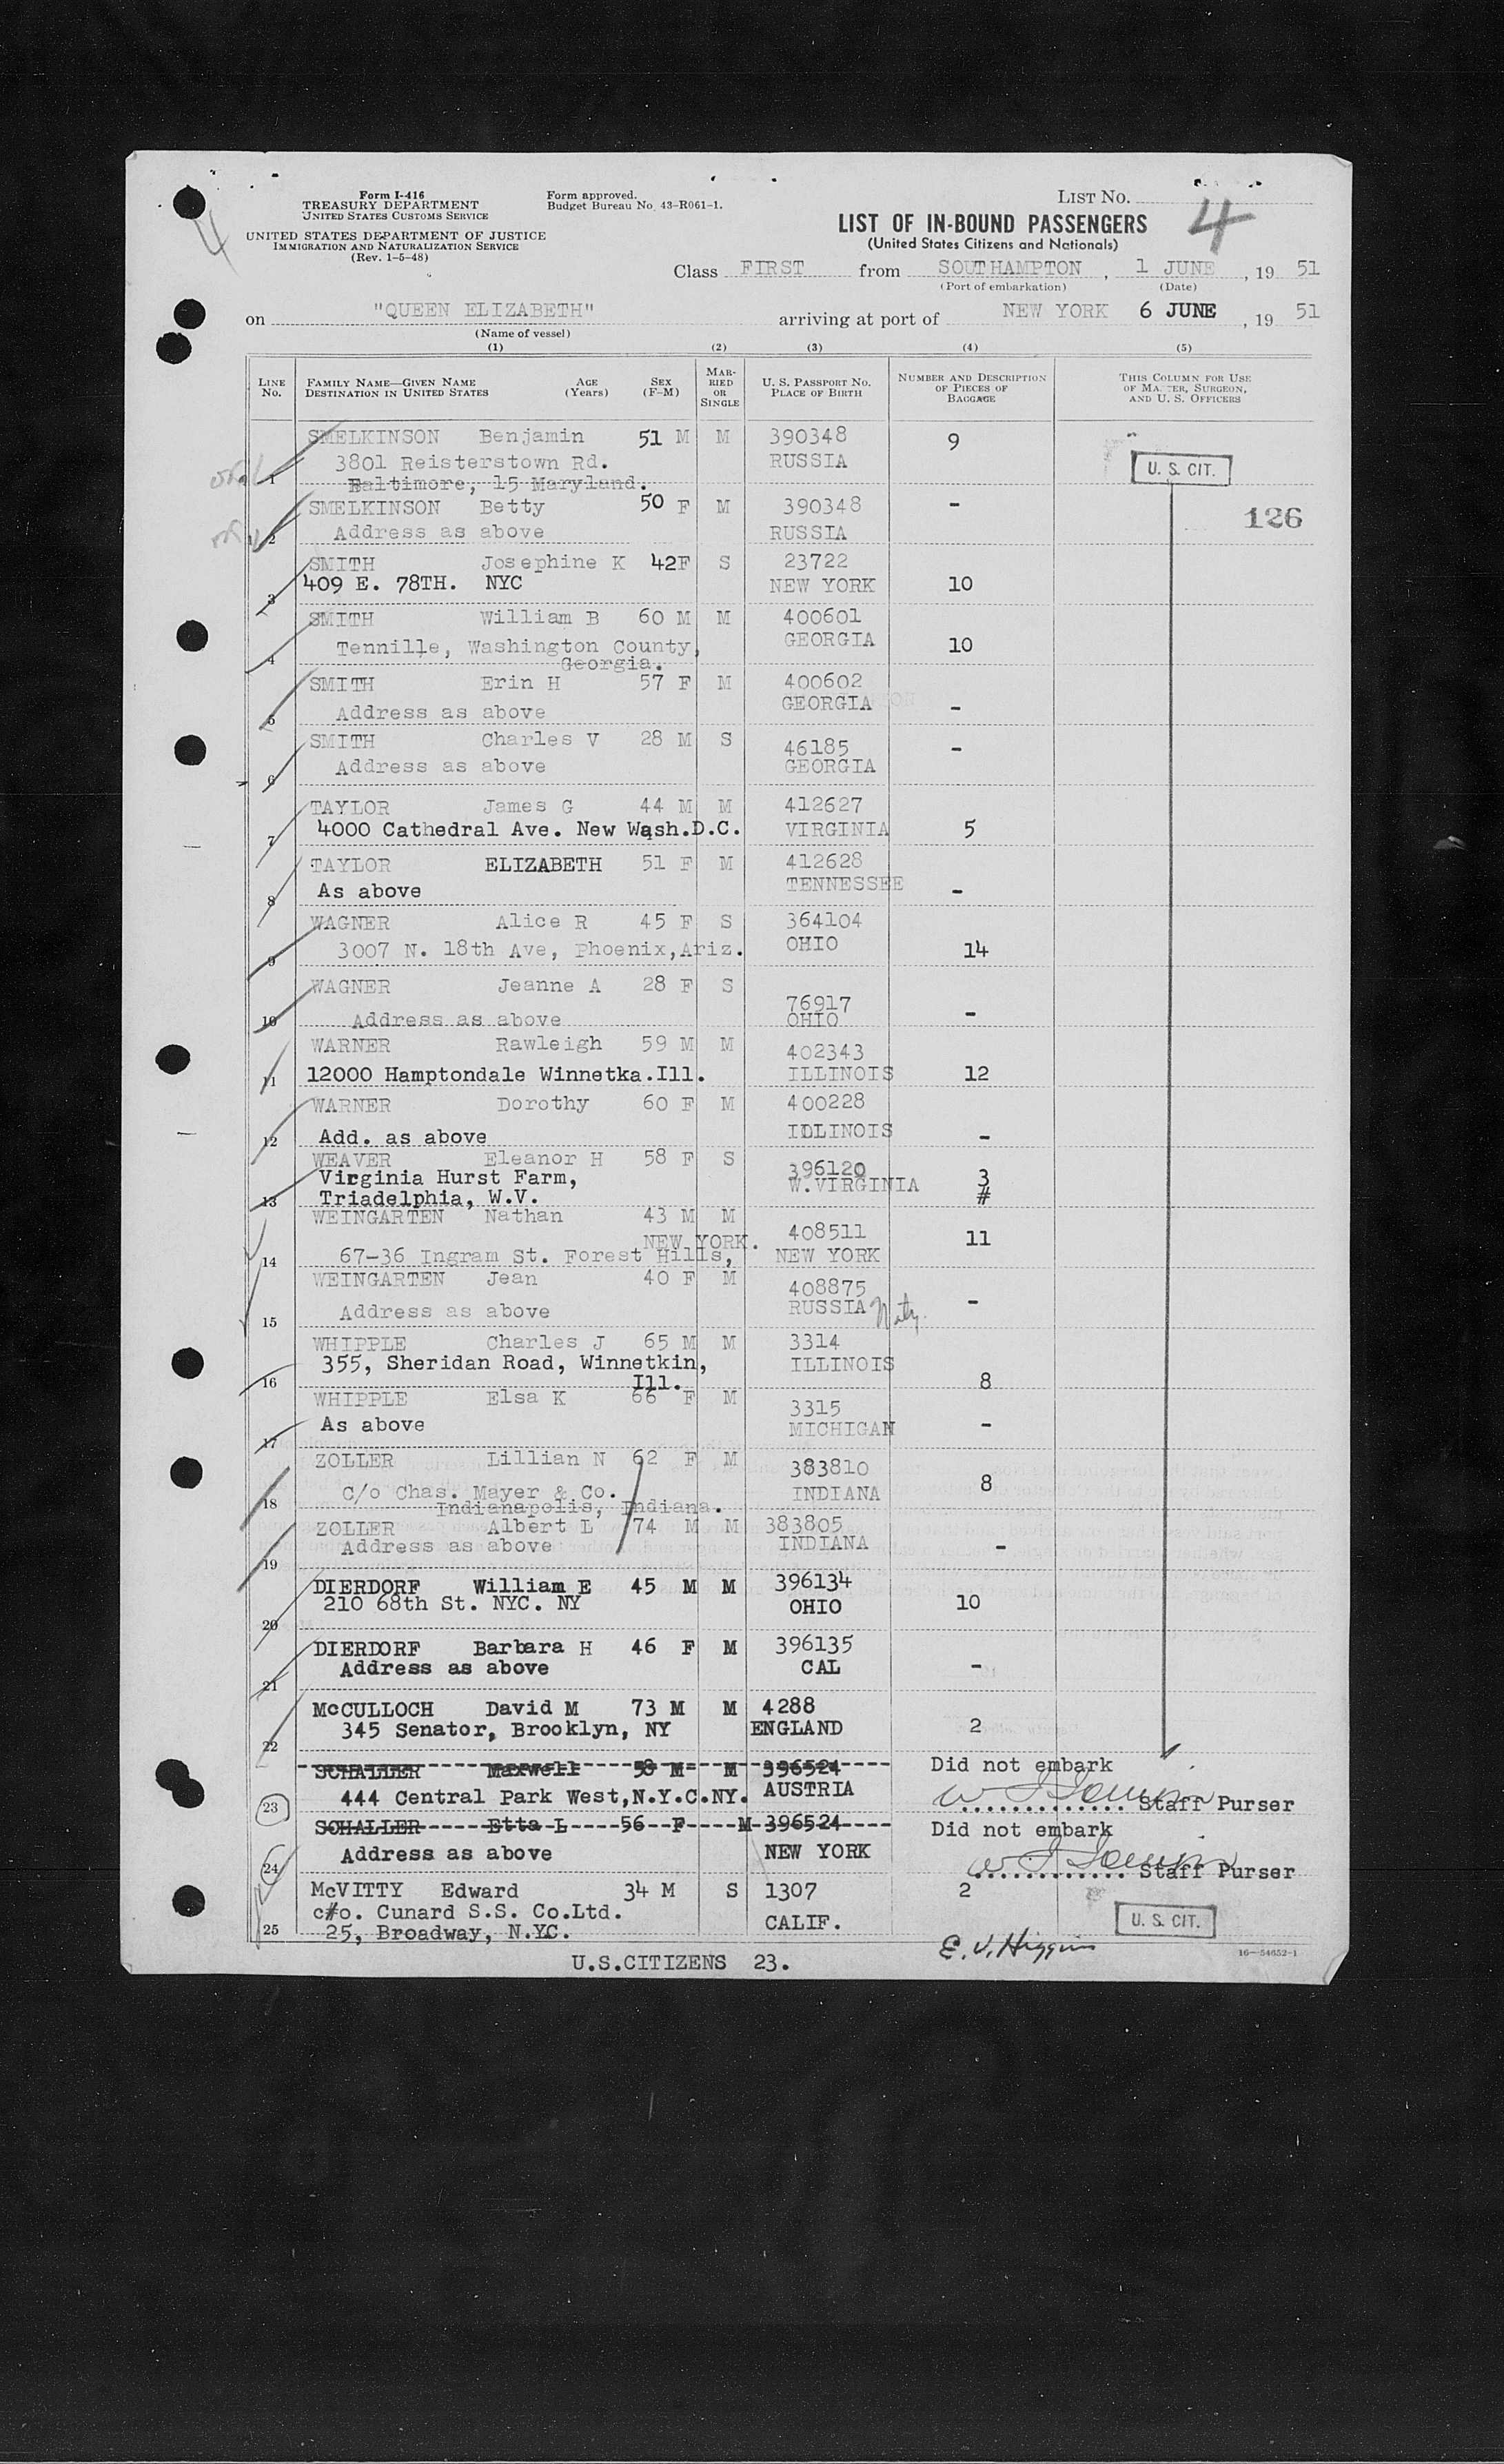 Form I-416
TREASURY DEPARTMENT
UNITED STATES CUSTOMS SERVICE
UNITED STATES DEPARTMENT OF JUSTICE
IMMIGRATION AND NATURALIZATION SERVICE
(Rev. 1-5-48)
Form approved.
Budget Bureau No. 43-R061-1.
LIST No. 4
4
LIST OF IN-BOUND PASSENGERS
(United States Citizens and Nationals)
Class FIRST from SOUTHAMPTON, 1 JUNE, 19 51
(Port of embarkation) (Date)
on "QUEEN ELIZABETH" arriving at port of NEW YORK 6 JUNE, 19 51
(Name of vessel)
(1) (2) (3) (4) (5)
LINE No. FAMILY NAME—GIVEN NAME DESTINATION IN UNITED STATES AGE (Years) SEX (F-M) MARRIED OR SINGLE U. S. PASSPORT NO. PLACE OF BIRTH NUMBER AND DESCRIPTION OF PIECES OF BAGGAGE THIS COLUMN FOR USE OF MASTER, SURGEON, AND U. S. OFFICERS
SMELKINSON Benjamin 51 M M 390348 9
3801 Reisterstown Rd. RUSSIA U. S. CIT.
1 Baltimore, 15 Maryland.
SMELKINSON Betty 50 F M 390348 - 126
2 Address as above RUSSIA
SMITH Josephine K 42F S 23722
3 409 E. 78TH. NYC NEW YORK 10
SMITH William B 60 M M 400601
4 Tennille, Washington County, GEORGIA 10
Georgia.
SMITH Erin H 57 F M 400602
5 Address as above GEORGIA -
SMITH Charles V 28 M S 46185 -
6 Address as above GEORGIA
TAYLOR James G 44 M M 412627
7 4000 Cathedral Ave. New Wash.D.C. VIRGINIA 5
TAYLOR ELIZABETH 51 F M 412628
8 As above TENNESSEE -
WAGNER Alice R 45 F S 364104
9 3007 N. 18th Ave, Phoenix,Ariz. OHIO 14
WAGNER Jeanne A 28 F S 76917
10 Address as above OHIO -
WARNER Rawleigh 59 M M 402343
11 12000 Hamptondale Winnetka.Ill. ILLINOIS 12
WARNER Dorothy 60 F M 400228
12 Add. as above IDLINOIS -
WEAVER Eleanor H 58 F S 396120 3
Virginia Hurst Farm, W.VIRGINIA #
13 Triadelphia, W.V.
WEINGARTEN Nathan 43 M M 408511 11
NEW YORK.
14 67-36 Ingram St. Forest Hills, NEW YORK
WEINGARTEN Jean 40 F M 408875
15 Address as above RUSSIA Natz. -
WHIPPLE Charles J 65 M M 3314
355, Sheridan Road, Winnetkin, ILLINOIS
16 Ill. 8
WHIPPLE Elsa K 66 F M 3315
17 As above MICHIGAN -
ZOLLER Lillian N 62 F M 383810
18 c/o Chas. Mayer & Co. INDIANA 8
Indianapolis, Indiana.
ZOLLER Albert L 74 M M 383805
19 Address as above INDIANA -
DIERDORF William E 45 M M 396134
20 210 68th St. NYC. NY OHIO 10
DIERDORF Barbara H 46 F M 396135
21 Address as above CAL -
McCULLOCH David M 73 M M 4288
22 345 Senator, Brooklyn, NY ENGLAND 2
SCHALLER Maxwell 58 M M 396524 Did not embark
23 444 Central Park West,N.Y.C.NY. AUSTRIA Staff Purser
SCHALLER Etta L 56 F M 396524 Did not embark
24 Address as above NEW YORK Staff Purser
McVITTY Edward 34 M S 1307 2
c/o. Cunard S.S. Co.Ltd.
25 25, Broadway, N.YC. CALIF. U. S. CIT.
U.S.CITIZENS 23. E. V. Higgins 16—54652-1